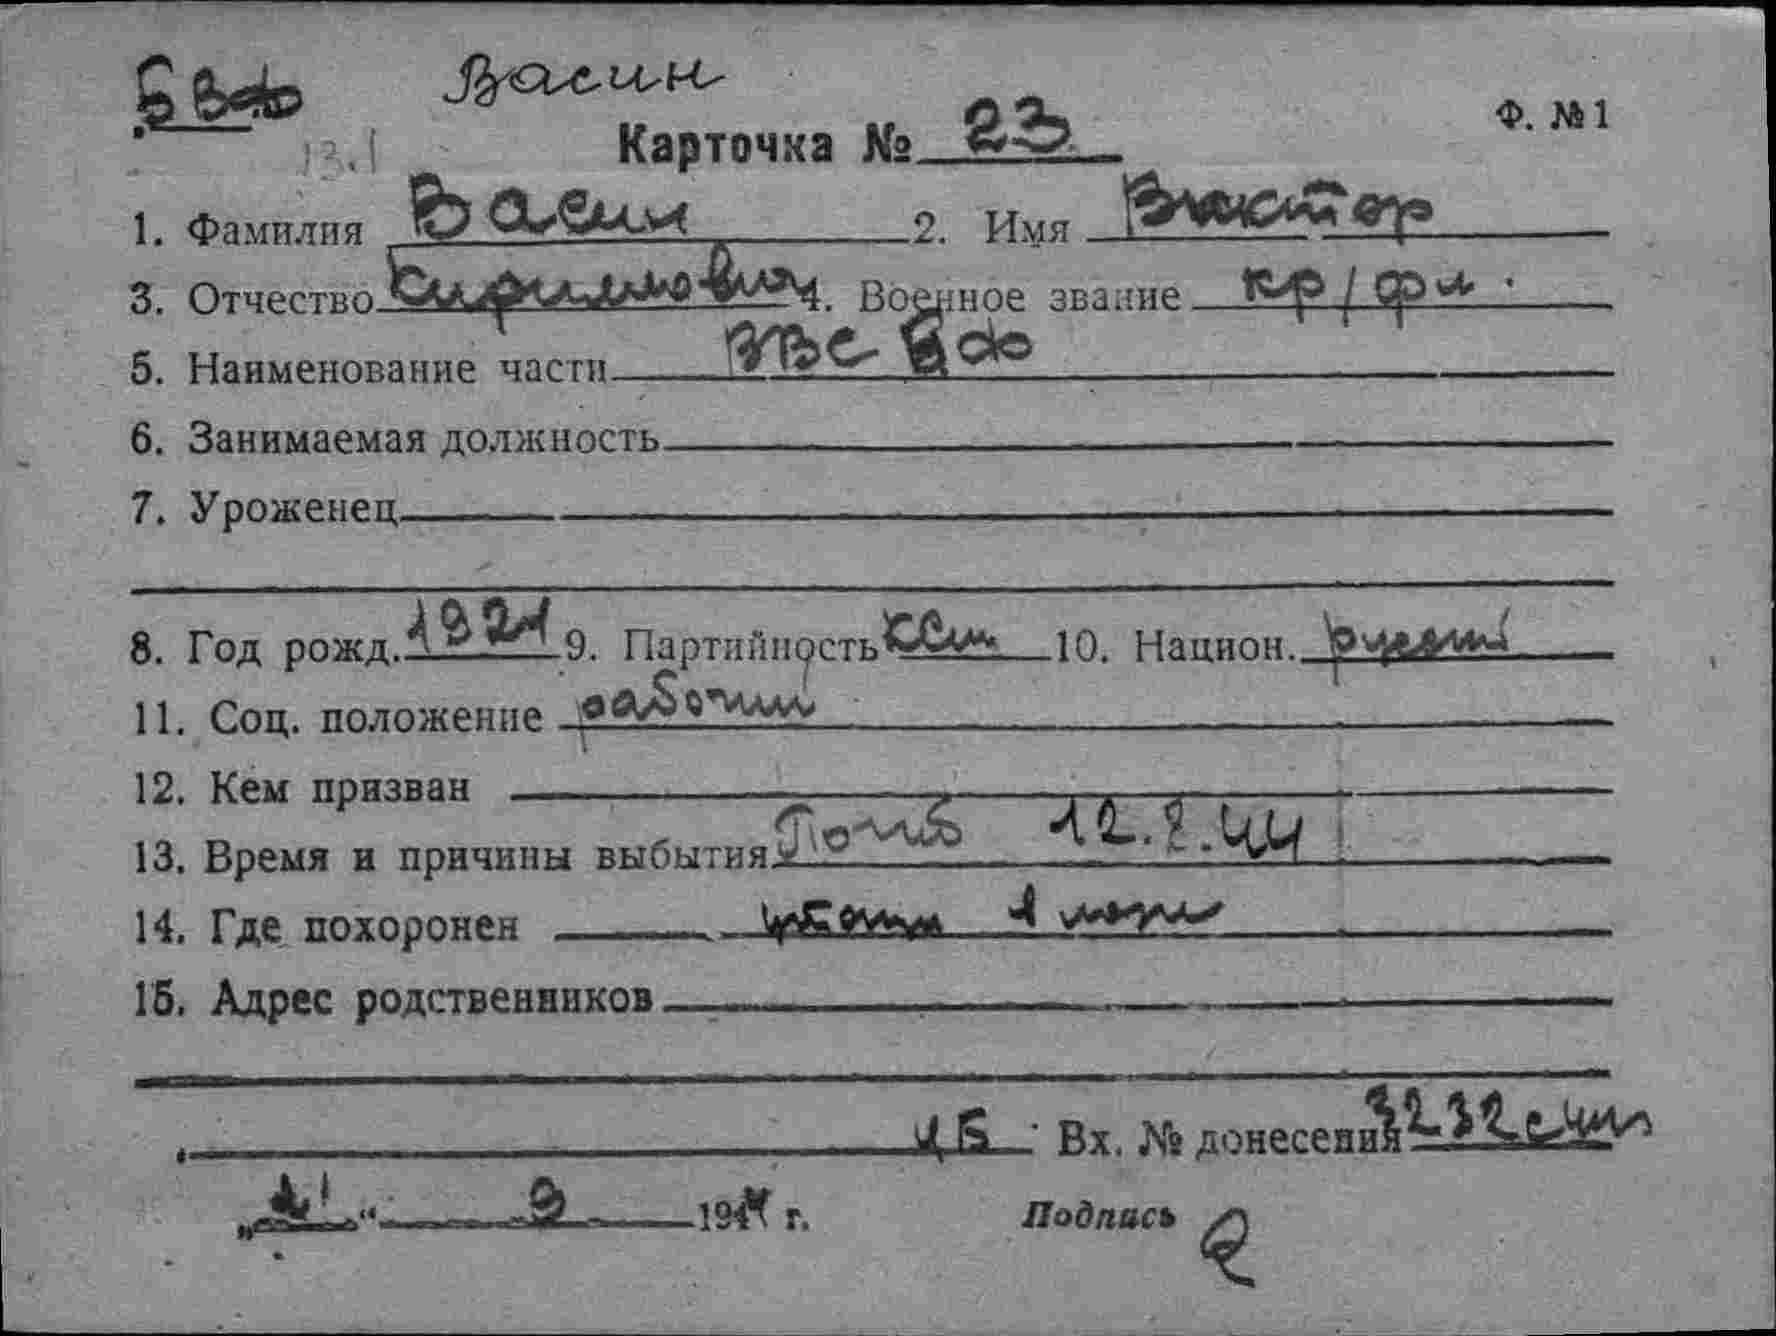 БВФ Васин
Карточка № 23 Ф. № 1
13.1
1. Фамилия Васин 2. Имя Виктор
3. Отчество Кириллович 4. Военное звание кр/фл.
5. Наименование части ВВС БФ
6. Занимаемая должность
7. Уроженец
8. Год рожд. 1921 9. Партийность 10. Национ. русский
11. Соц. положение рабочий
12. Кем призван
13. Время и причины выбытия Погиб 12.2.44
14. Где похоронен
15. Адрес родственников
ЦБ Вх. № донесения 3232
„ “ 9 1944 г. Подпись